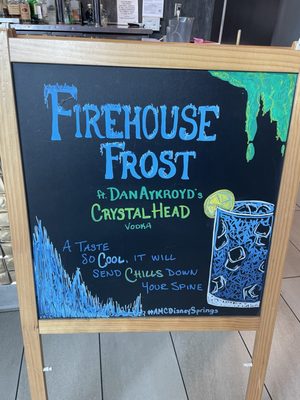 FIREHOUSE
FROST
ft. DAN AYKROYD's
CRYSTAL HEAD
VODKA
A TASTE
SO COOL, IT WILL
SEND CHILLS DOWN
YOUR SPINE
#AMCDisneySprings